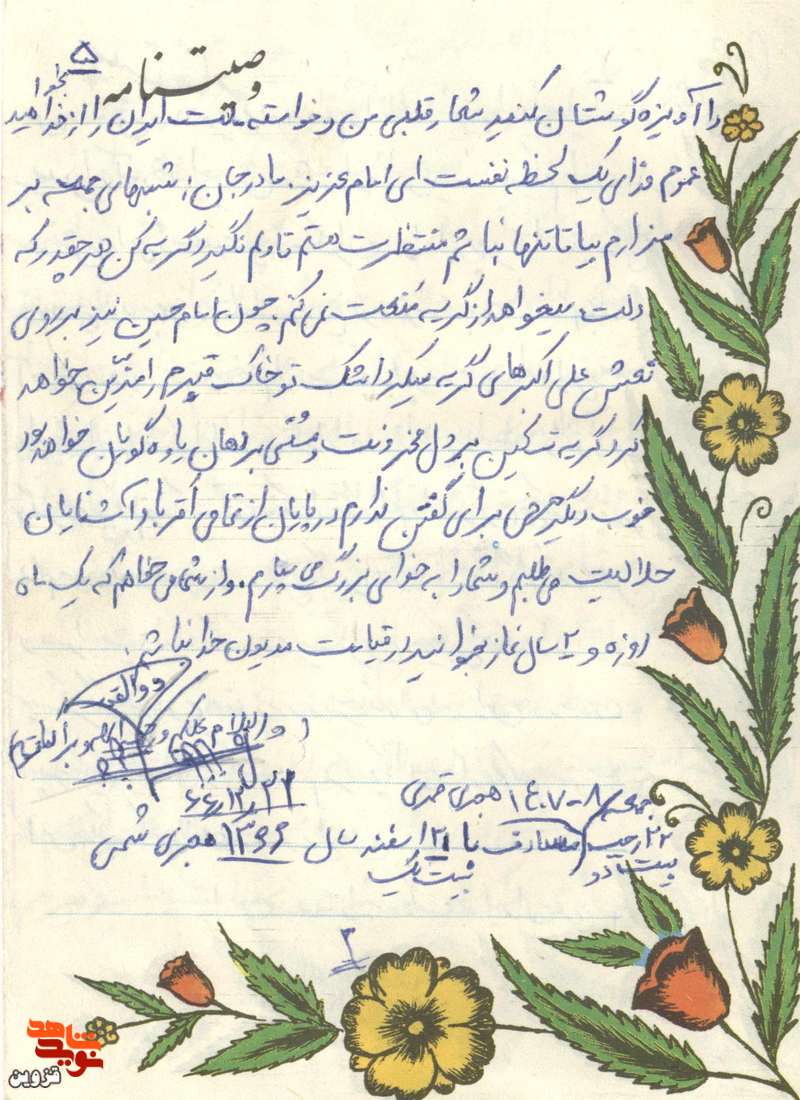 وصیتنامه
۵
را آویزه گوشتان کنید شعار قلبی من و خواسته ملت ایران را از خدا بخواهید
عمرم فدای یک لحظه نفست ای امام عزیز. مادر جان: شبهای جمعه بر
مزارم بیا تا تنها نباشم منتظرت هستم تا دلم نگیرد گریه کن هر چقدر که
دلت میخواهد از گریه منعت نمی کنم چون امام حسین نیز بر روی
نعش علی اکبرهای گریه میکرد اشک تو خاک قبرم را متبرک خواهد
کرد گریه تسکین بر دل محزونت و مشتی بر دهان یاوه گویان خواهد بود
خوب دیگر عرضی برای گفتن ندارم در پایان از تمامی اقربا و آشنایان
حلالیت می طلبم و شما را به خدای بزرگ می سپارم. و از شما می خواهم که یک ماه
روزه و ۲ سال نماز بخوانید در قیامت مدیون خدا نباشم.
والسلام علیکم و
۶۶٫۱۲٫۲۱
جمعه ۱۴۰۷-۸ هجری قمری
۲۲ رجب مصادف با ۲۱ اسفند سال ۱۳۶۶ هجری شمسی
بیست و دو بیست یک
۲
نوید شاهد
قزوین